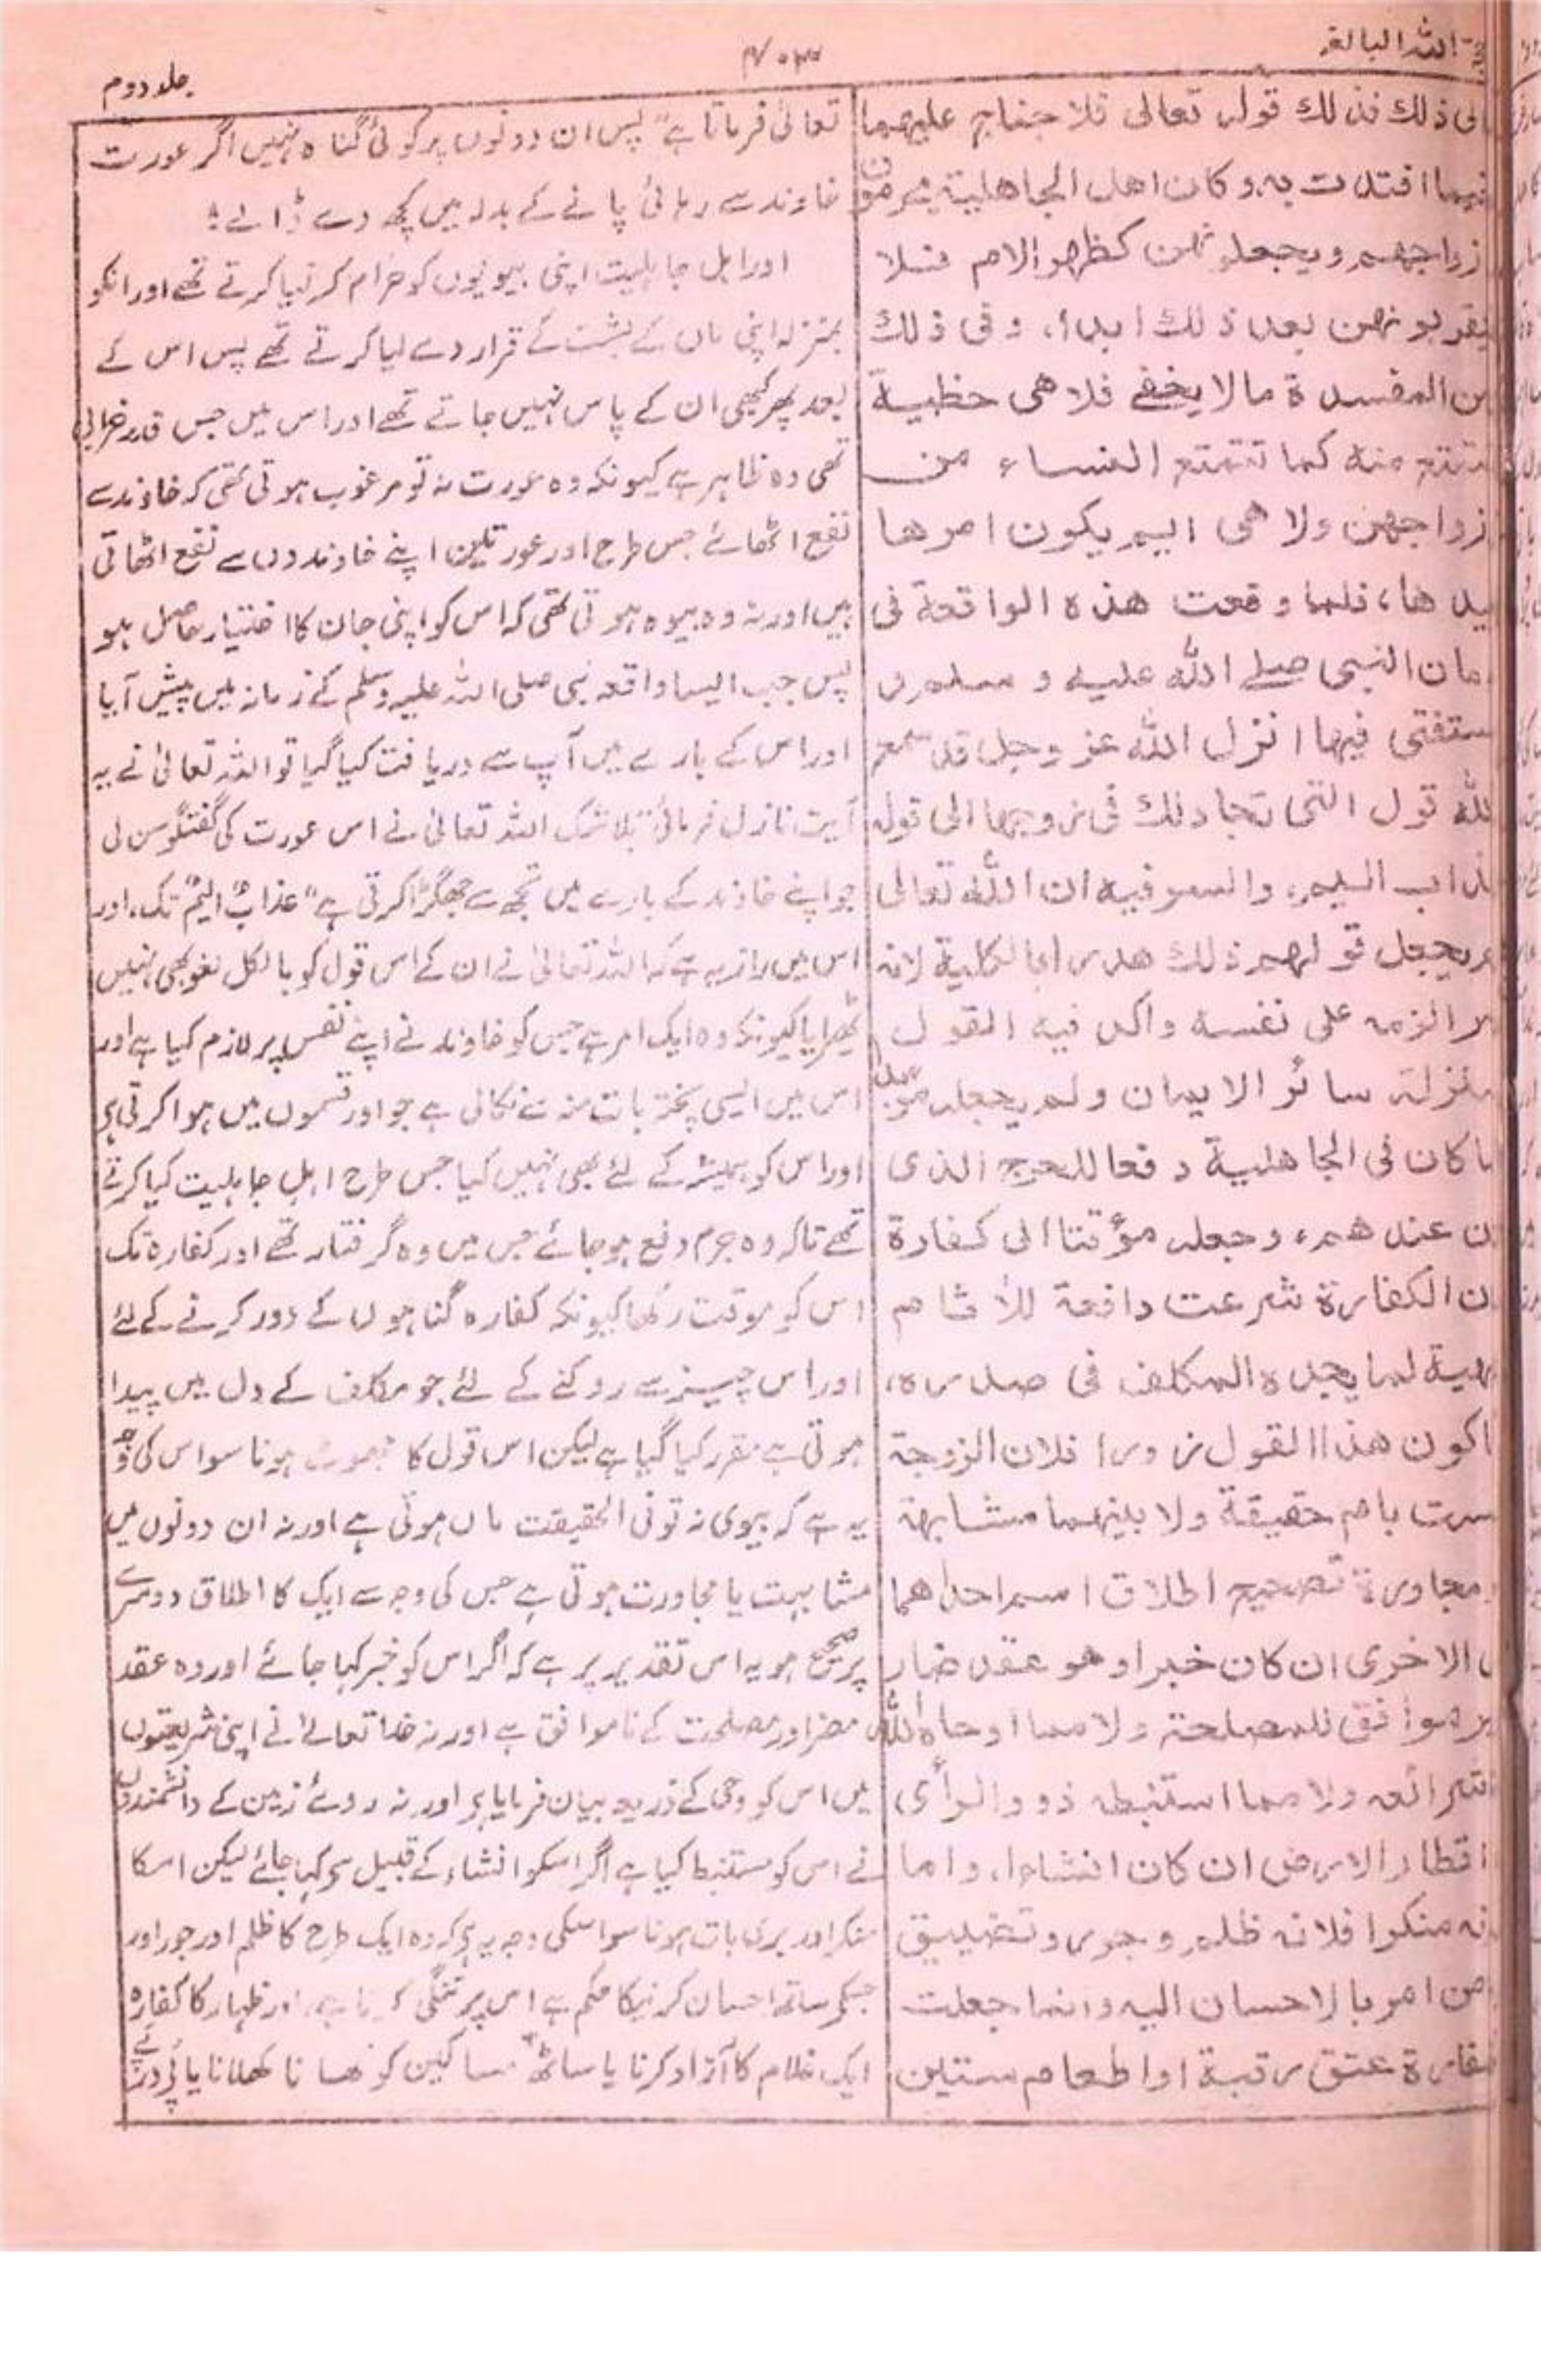 اللہ البالغہ
۴۰۳
جلد دوم
ذلك فذلك قوله تعالى فلا جناح عليهما
فيما افتدت به وكان اهل الجاهلية يحرمون
زواجهم ويجعلونهن كظهر الام فلا
يقربونهن بعد ذلك ابدا، وفى ذلك
من المفسدة مالا يخفے فلا هى حظية
تتمتع منه كما تتمتع النساء من
زواجهن ولا هى ايم يكون امرها
بيدها، فلما وقعت هذه الواقعة فى
مان النبى صلے الله عليه و سلم
ستفتى فيها انزل الله عز وجل قد سمع
لله قول التى تجادلك فى زوجها الى قوله
ذاب اليم، والسر فيه ان الله تعالى
يجعل قولهم ذلك هدرا بالكلية لانه
مر الزمه على نفسه واكد فيه القول
منزلة سائر الايمان ولم يجعله مؤبدا
ما كان فى الجاهلية دفعا للحرج الذى
ن عندهم، وجعله مؤقتا الى كفارة
ن الكفارة شرعت دافعة للآثام
نهية لما يجده المكلف فى صدره،
اكون هذا القول زورا فلان الزوجة
ست بام حقيقة ولا بينهما مشابهة
مجاورة تصحيح اطلاق اسم احداهما
الاخرى ان كان خبرا وهو عقد ضار
ير موافق للمصلحة ولا مما اوحاه الله
شرائعه ولا مما استنبطه ذوو الرأى
اقطار الارض ان كان انشاءا، واما
نه منكرا فلانه ظلم وجور وتضييق
من امر بالاحسان اليه وانما جعلت
كفارة عتق رقبة او اطعام ستين
تعالیٰ فرماتا ہے "پس ان دونوں پر کوئی گناہ نہیں اگر عورت
خاوند سے رہائی پانے کے بدلہ میں کچھ دے ڈالے؛
اور اہل جاہلیت اپنی بیویوں کو حرام کر لیا کرتے تھے اور انکو
بمنزلہ اپنی ماں کے پشت کے قرار دے لیا کرتے تھے پس اس کے
بعد پھر کبھی ان کے پاس نہیں جاتے تھے اور اس میں جس قدر خرابی
تھی وہ ظاہر ہے کیونکہ وہ عورت نہ تو مرغوب ہوتی تھی کہ خاوند سے
نفع اٹھائے جس طرح اور عورتیں اپنے خاوندوں سے نفع اٹھاتی
ہیں اور نہ وہ بیوہ ہوتی تھی کہ اس کو اپنی جان کا اختیار حاصل ہو
پس جب ایسا واقعہ نبی صلی اللہ علیہ وسلم کے زمانہ میں پیش آیا
اور اس کے بارے میں آپ سے دریافت کیا گیا تو اللہ تعالیٰ نے یہ
آیت نازل فرمائی "بلا شک اللہ تعالیٰ نے اس عورت کی گفتگو سن لی
جو اپنے خاوند کے بارے میں تجھ سے جھگڑا کرتی ہے" عذابٌ الیمٌ تک، اور
اس میں راز یہ ہے کہ اللہ تعالیٰ نے ان کے اس قول کو بالکل لغو بھی نہیں
ٹھرایا کیونکہ وہ ایک امر ہے جس کو خاوند نے اپنے نفس پر لازم کیا ہے اور
اس میں ایسی پختہ بات منہ سے نکالی ہے جو اور قسموں میں ہوا کرتی ہے
اور اس کو ہمیشہ کے لئے بھی نہیں کیا جس طرح اہل جاہلیت کیا کرتے
تھے تاکہ وہ جرم دفع ہو جائے جس میں وہ گرفتار تھے اور کفارہ تک
اس کو موقت رکھا کیونکہ کفارہ گناہوں کے دور کرنے کے لئے
اور اس چیز سے روکنے کے لئے جو مکلف کے دل میں پیدا
ہوتی ہے مقرر کیا گیا ہے لیکن اس قول کا جھوٹ ہونا سو اس کی وجہ
یہ ہے کہ بیوی نہ تو فی الحقیقت ماں ہوتی ہے اور نہ ان دونوں میں
مشابہت یا مجاورت ہوتی ہے جس کی وجہ سے ایک کا اطلاق دوسرے
پر صحیح ہو یہ اس تقدیر پر ہے کہ اگر اس کو خبر کہا جائے اور وہ عقد
مضر اور مصلحت کے ناموافق ہے اور نہ خدا تعالےٰ نے اپنی شریعتوں
میں اس کو وحی کے ذریعہ بیان فرمایا ہے اور نہ روئے زمین کے دانشمندوں
نے اس کو مستنبط کیا ہے اگر اسکو انشاء کے قبیل سے کہا جائے لیکن اسکا
منکر اور بری بات ہونا سو اسکی وجہ یہ ہے کہ وہ ایک طرح کا ظلم اور جور اور
جسکے ساتھ احسان کرنیکا حکم ہے اس پر تنگی کرنا ہے، اور ظہار کا کفارہ
ایک غلام کا آزاد کرنا یا ساٹھ مساکین کو کھانا کھلانا یا پے در پے